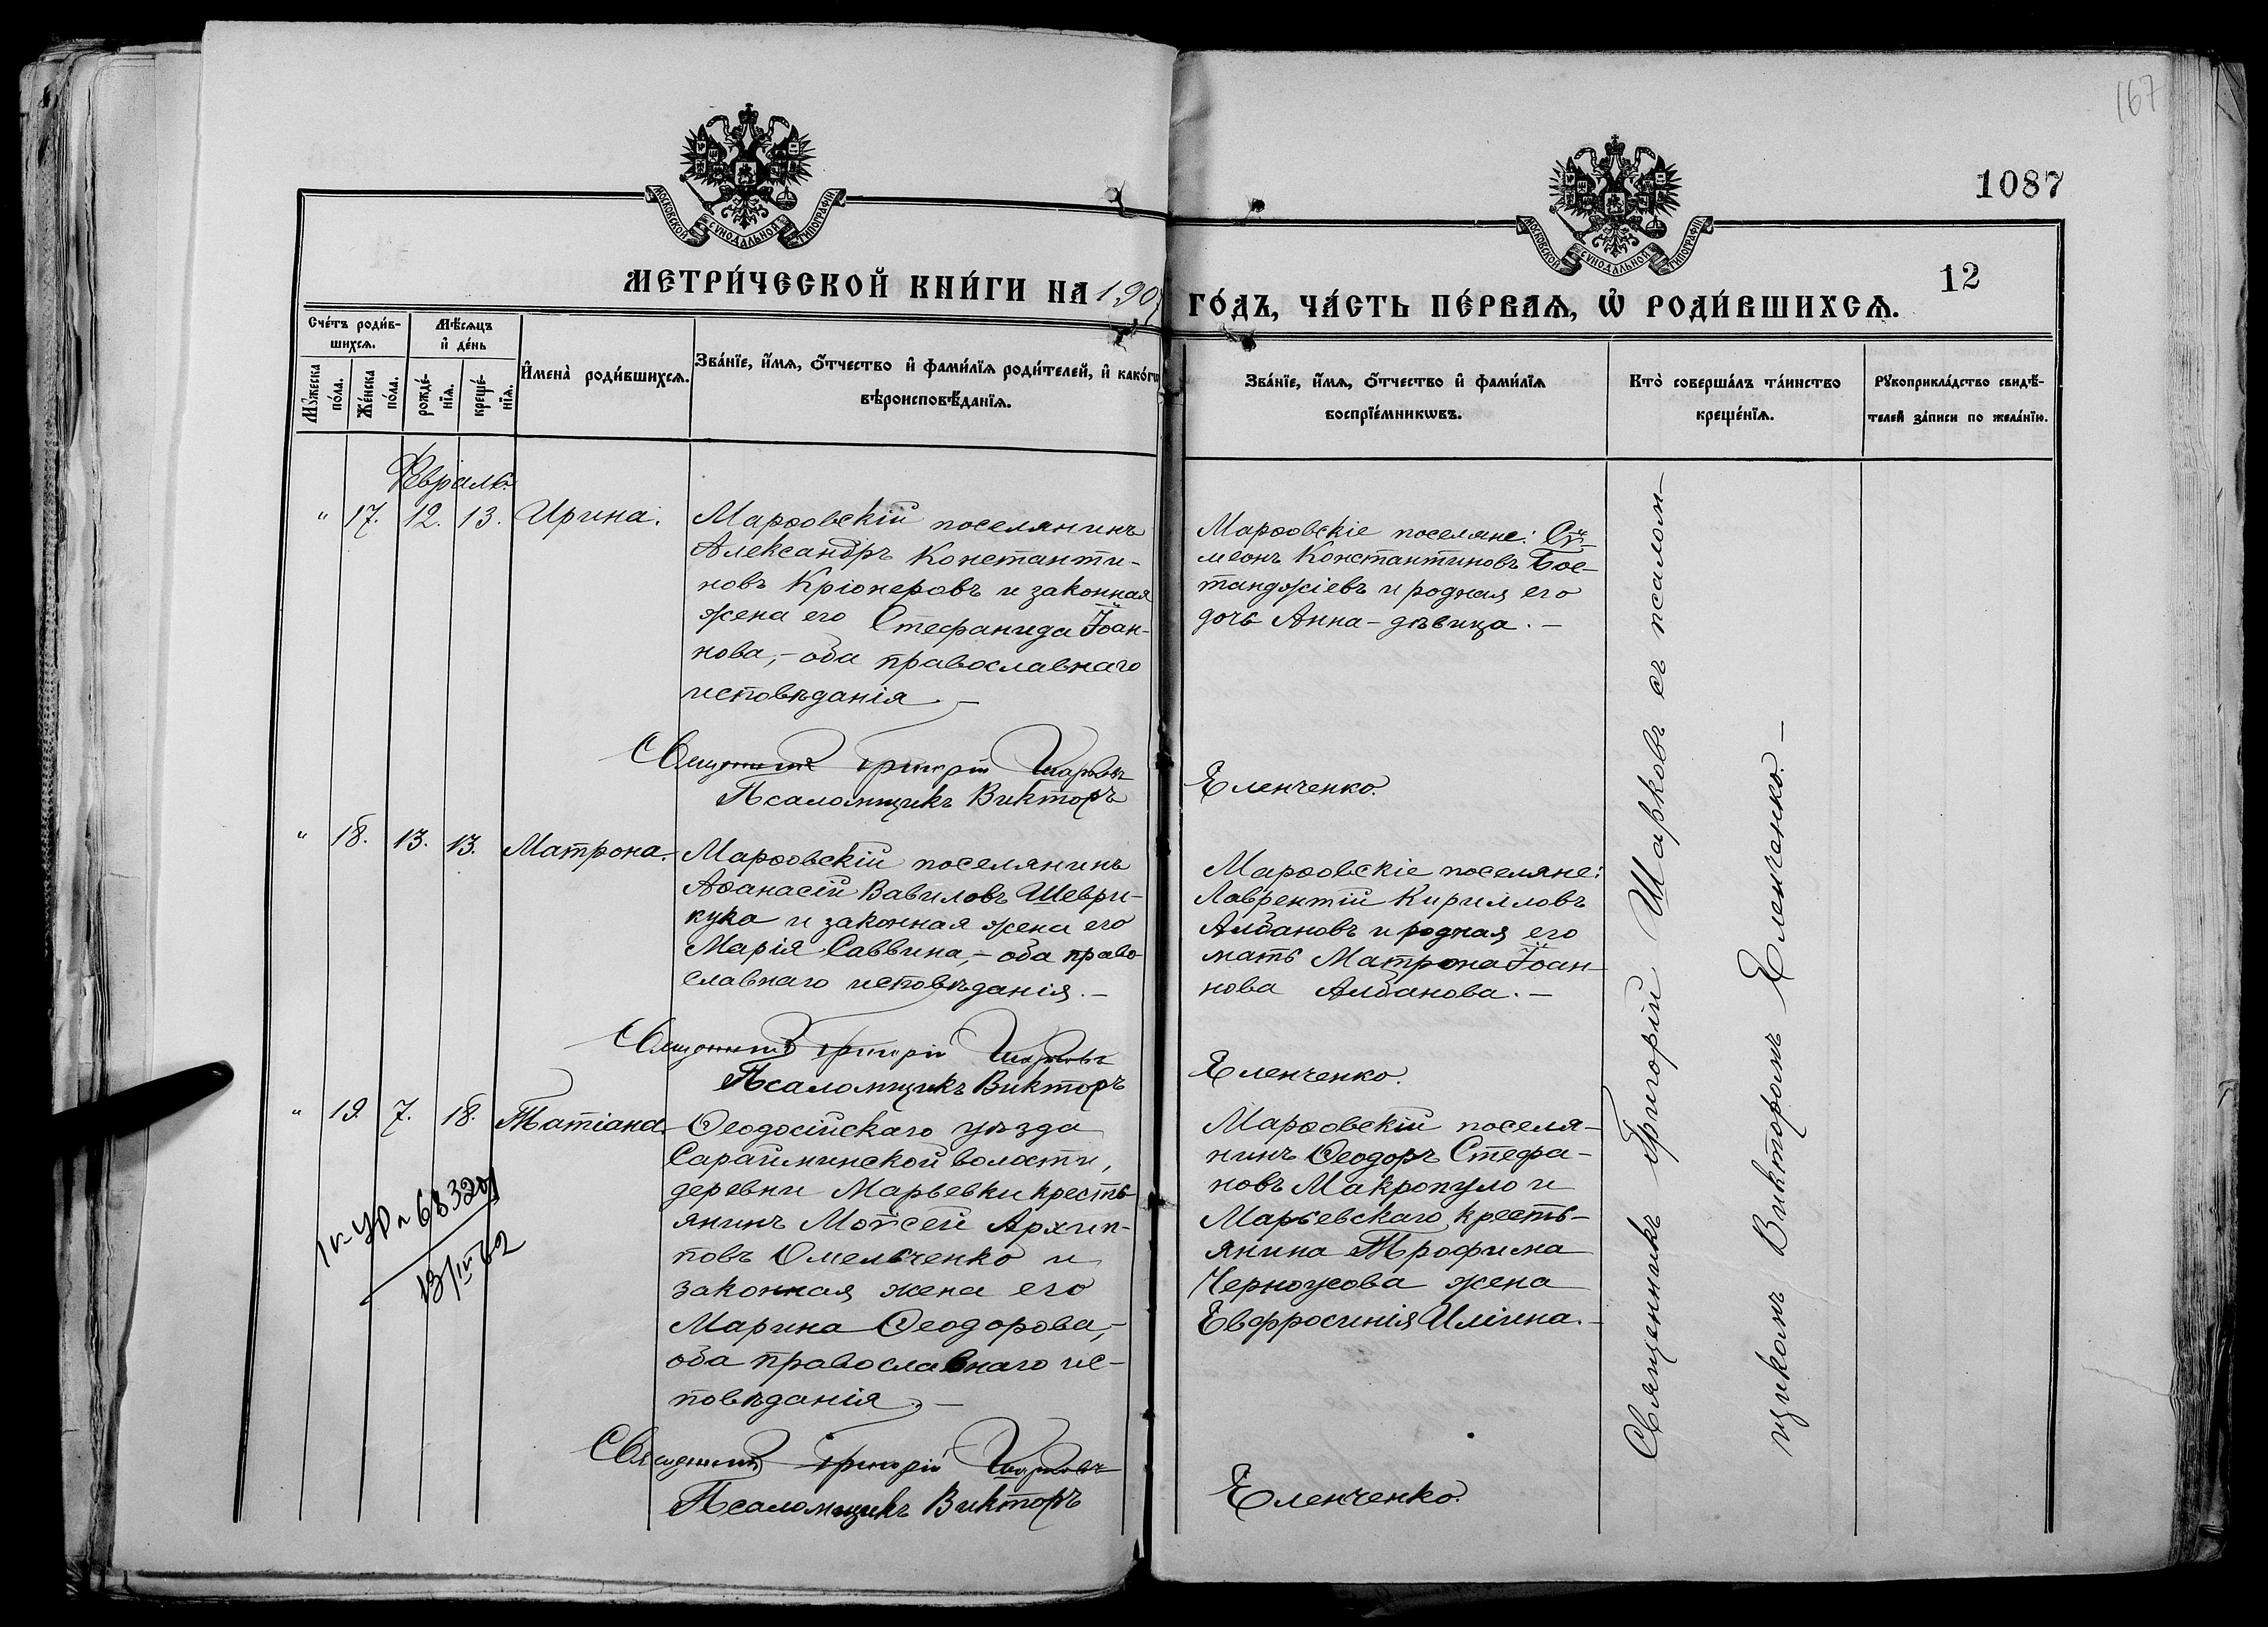 167
1087
12
МОСКОВСКОЙ СУНОДАЛЬНОЙ ТИПОГРАФІИ
МОСКОВСКОЙ СУНОДАЛЬНОЙ ТИПОГРАФІИ
МЕТРИ́ЧЕСКОЙ КНИ́ГИ НА 190
ГО́ДЪ, ЧА́СТЬ ПЕ́РВАѦ, Ѡ҆ РОДИ́ВШИХСѦ.
Сче́тъ роди́в-
шихсѧ.
Мѣ́сѧцъ
и҆ де́нь
Мꙋ́жеска
по́ла.
Же́нска
по́ла.
рожде́-
нїѧ.
креще́-
нїѧ.
И҆мена̀ роди́вшихсѧ.
Зва́нїе, и҆́мѧ, ѻ҆́тчество и҆ фами́лїѧ роди́телей, и҆ како́гѡ
вѣроисповѣ́данїѧ.
Зва́нїе, и҆́мѧ, ѻ҆́тчество и҆ фами́лїѧ
воспрїе́мникѡвъ.
Кто̀ соверша́лъ та́инство
креще́нїѧ.
Рꙋкоприкла́дство свидѣ́-
телей за́писи по жела́нїю.
Февраль
" 17. 12. 13. Ирина.
Марѳовскій поселянинъ
Александръ Константи-
новъ Кріонеровъ и законная
жена его Стефанида Іоан-
нова,- оба православнаго
исповѣданія.-
Священникъ Григорій Шарковъ
Псаломщикъ Викторъ
Марѳовскіе поселяне: Си-
меонъ Константиновъ Бос-
танджіевъ и родная его
дочь Анна - дѣвица.-
Еленченко.
" 18. 13. 13. Матрона.
Марѳовскій поселянинъ
Аѳанасій Вавиловъ Шеври-
кука и законная жена его
Марія Саввина,- оба право-
славнаго исповѣданія.-
Священникъ Григорій Шарковъ
Псаломщикъ Викторъ
Марѳовскіе поселяне:
Лаврентій Кирилловъ
Албановъ и родная его
мать Матрона Іоан-
нова Албанова.-
Еленченко.
" 19. 7. 18. Татіана.
Ѳеодосійскаго уѣзда
Сарайминской волости,
деревни Марьевки кресть-
янинъ Моѵсей Архип-
повъ Омельченко и
законная жена его
Марина Ѳеодорова,-
оба православнаго ис-
повѣданія.-
Священникъ Григорій Шарковъ
Псаломщикъ Викторъ
Марѳовскій поселя-
нинъ Ѳеодоръ Стефа-
новъ Макропуло и
Марьевскаго кресть-
янина Трофима
Черноусова жена
Евфросинія Иліина.-
Еленченко.
Священникъ Григорій Шарковъ съ псалом-
щикомъ Викторомъ Еленченко.-
68320
13/IV 62